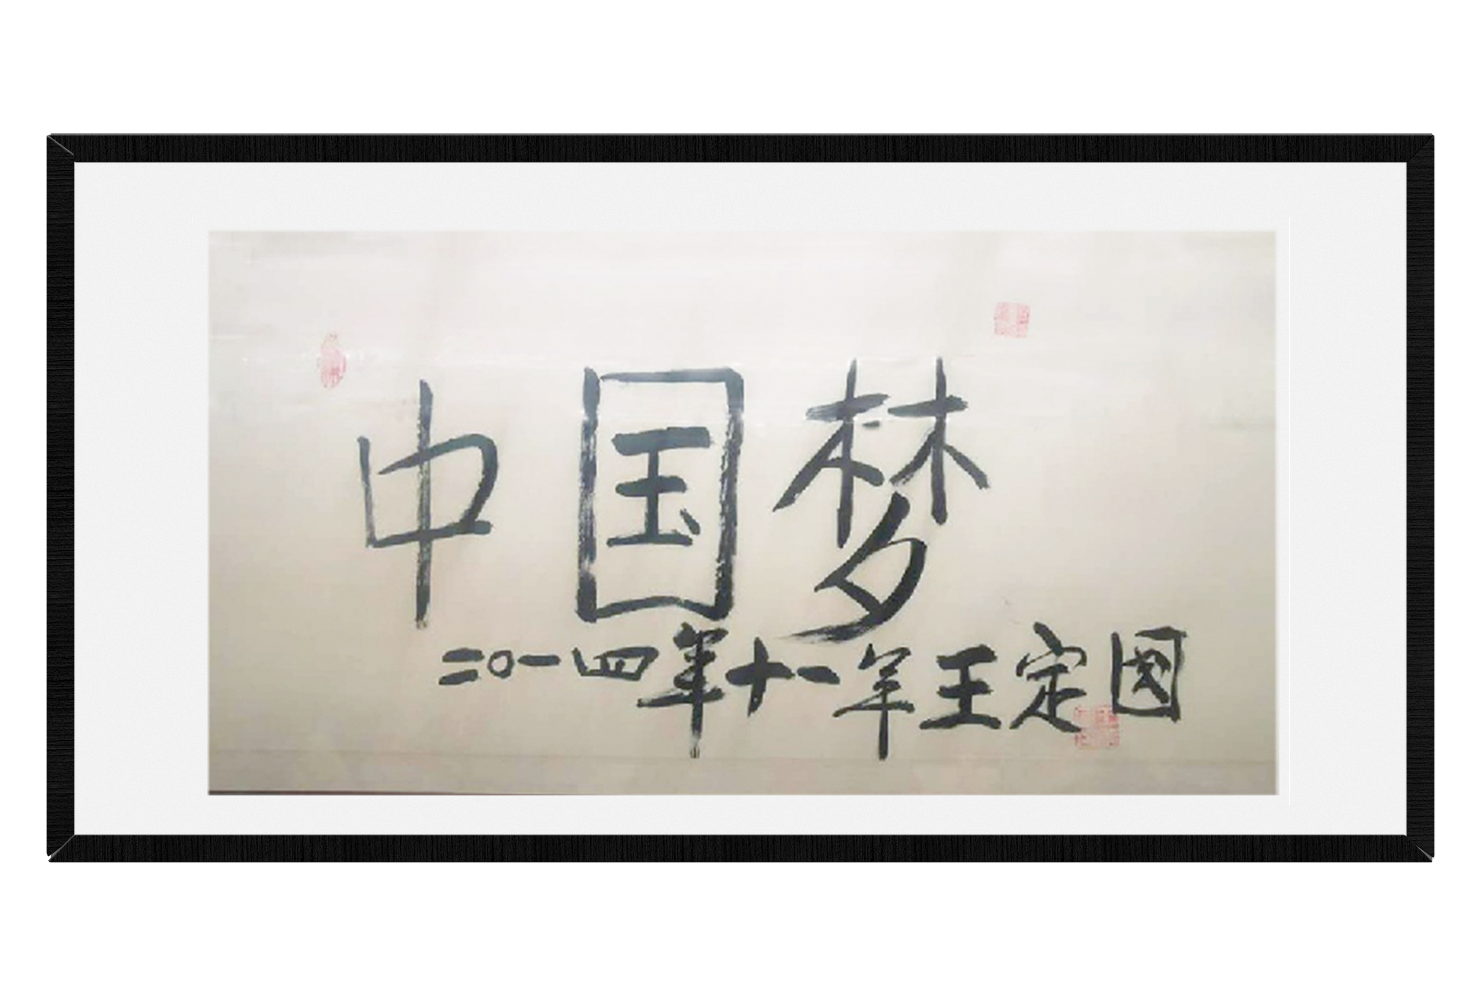 中国梦
二〇一四年十一年王定国